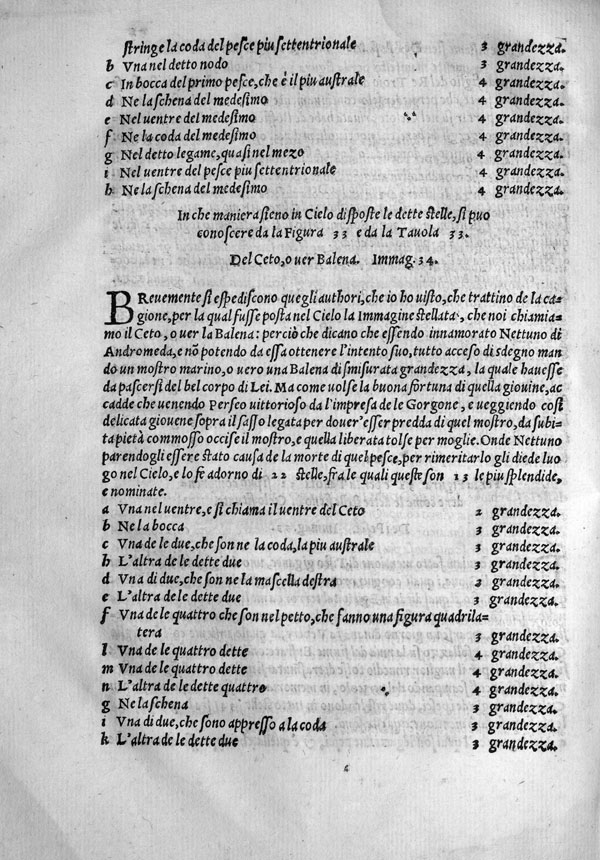 stringe la coda del pesce piu settentrionale 3 grandezza.
b Vna nel detto nodo 3 grandezza.
c In bocca del primo pesce, che è il piu australe 4 grandezza.
d Ne la schena del medesimo 4 grandezza.
e Nel uentre del medesimo 4 grandezza.
f Ne la coda del medesimo 4 grandezza.
g Nel detto legame, quasi nel mezo 4 grandezza.
i Nel uentre del pesce piu settentrionale 4 grandezza.
h Ne la schena del medesimo 4 grandezza.
In che maniera sieno in Cielo disposte le dette stelle, si puo
conoscere da la Figura 33 e da la Tauola 33.
Del Ceto, o uer Balena. Immag. 34.
BReuemente si espediscono quegli authori, che io ho uisto, che trattino de la ca-
gione, per la qual fusse posta nel Cielo la Immagine stellata, che noi chiamia-
mo il Ceto, o uer la Balena: perciò che dicano che essendo innamorato Nettuno di
Andromeda, e nō potendo da essa ottenere l'intento suo, tutto acceso di sdegno man
do un mostro marino, o uero una Balena di smisurata grandezza, la quale hauesse
da pascersi del bel corpo di Lei. Ma come uolse la buona fortuna di quella giouine, ac
cadde che uenendo Perseo uittorioso da l'impresa de le Gorgone, e ueggiendo cosi
delicata giouene sopra il sasso legata per douer'esser predda di quel mostro, da subi-
ta pietà commosso occise il mostro, e quella liberata tolse per moglie. Onde Nettuno
parendogli essere stato causa de la morte di quel pesce, per rimeritarlo gli diede luo
go nel Cielo, e lo fe adorno di 22 stelle, fra le quali queste son 13 le piu splendide,
e nominate.
a Vna nel uentre, e si chiama il uentre del Ceto 2 grandezza.
b Ne la bocca 3 grandezza.
c Vna de le due, che son ne la coda, la piu australe 3 grandezza.
h L'altra de le dette due 3 grandezza.
d Vna di due, che son ne la mascella destra 3 grandezza.
e L'altra de le dette due 3 grandezza.
f Vna de le quattro che son nel petto, che fanno una figura quadrila-
tera 3 grandezza.
l Vna de le quattro dette 4 grandezza.
m Vna de le quattro dette 4 grandezza.
n L'altra de le dette quattro 4 grandezza.
g Ne la schena 3 grandezza.
i Vna di due, che sono appresso a la coda 3 grandezza.
k L'altra de le dette due 3 grandezza.